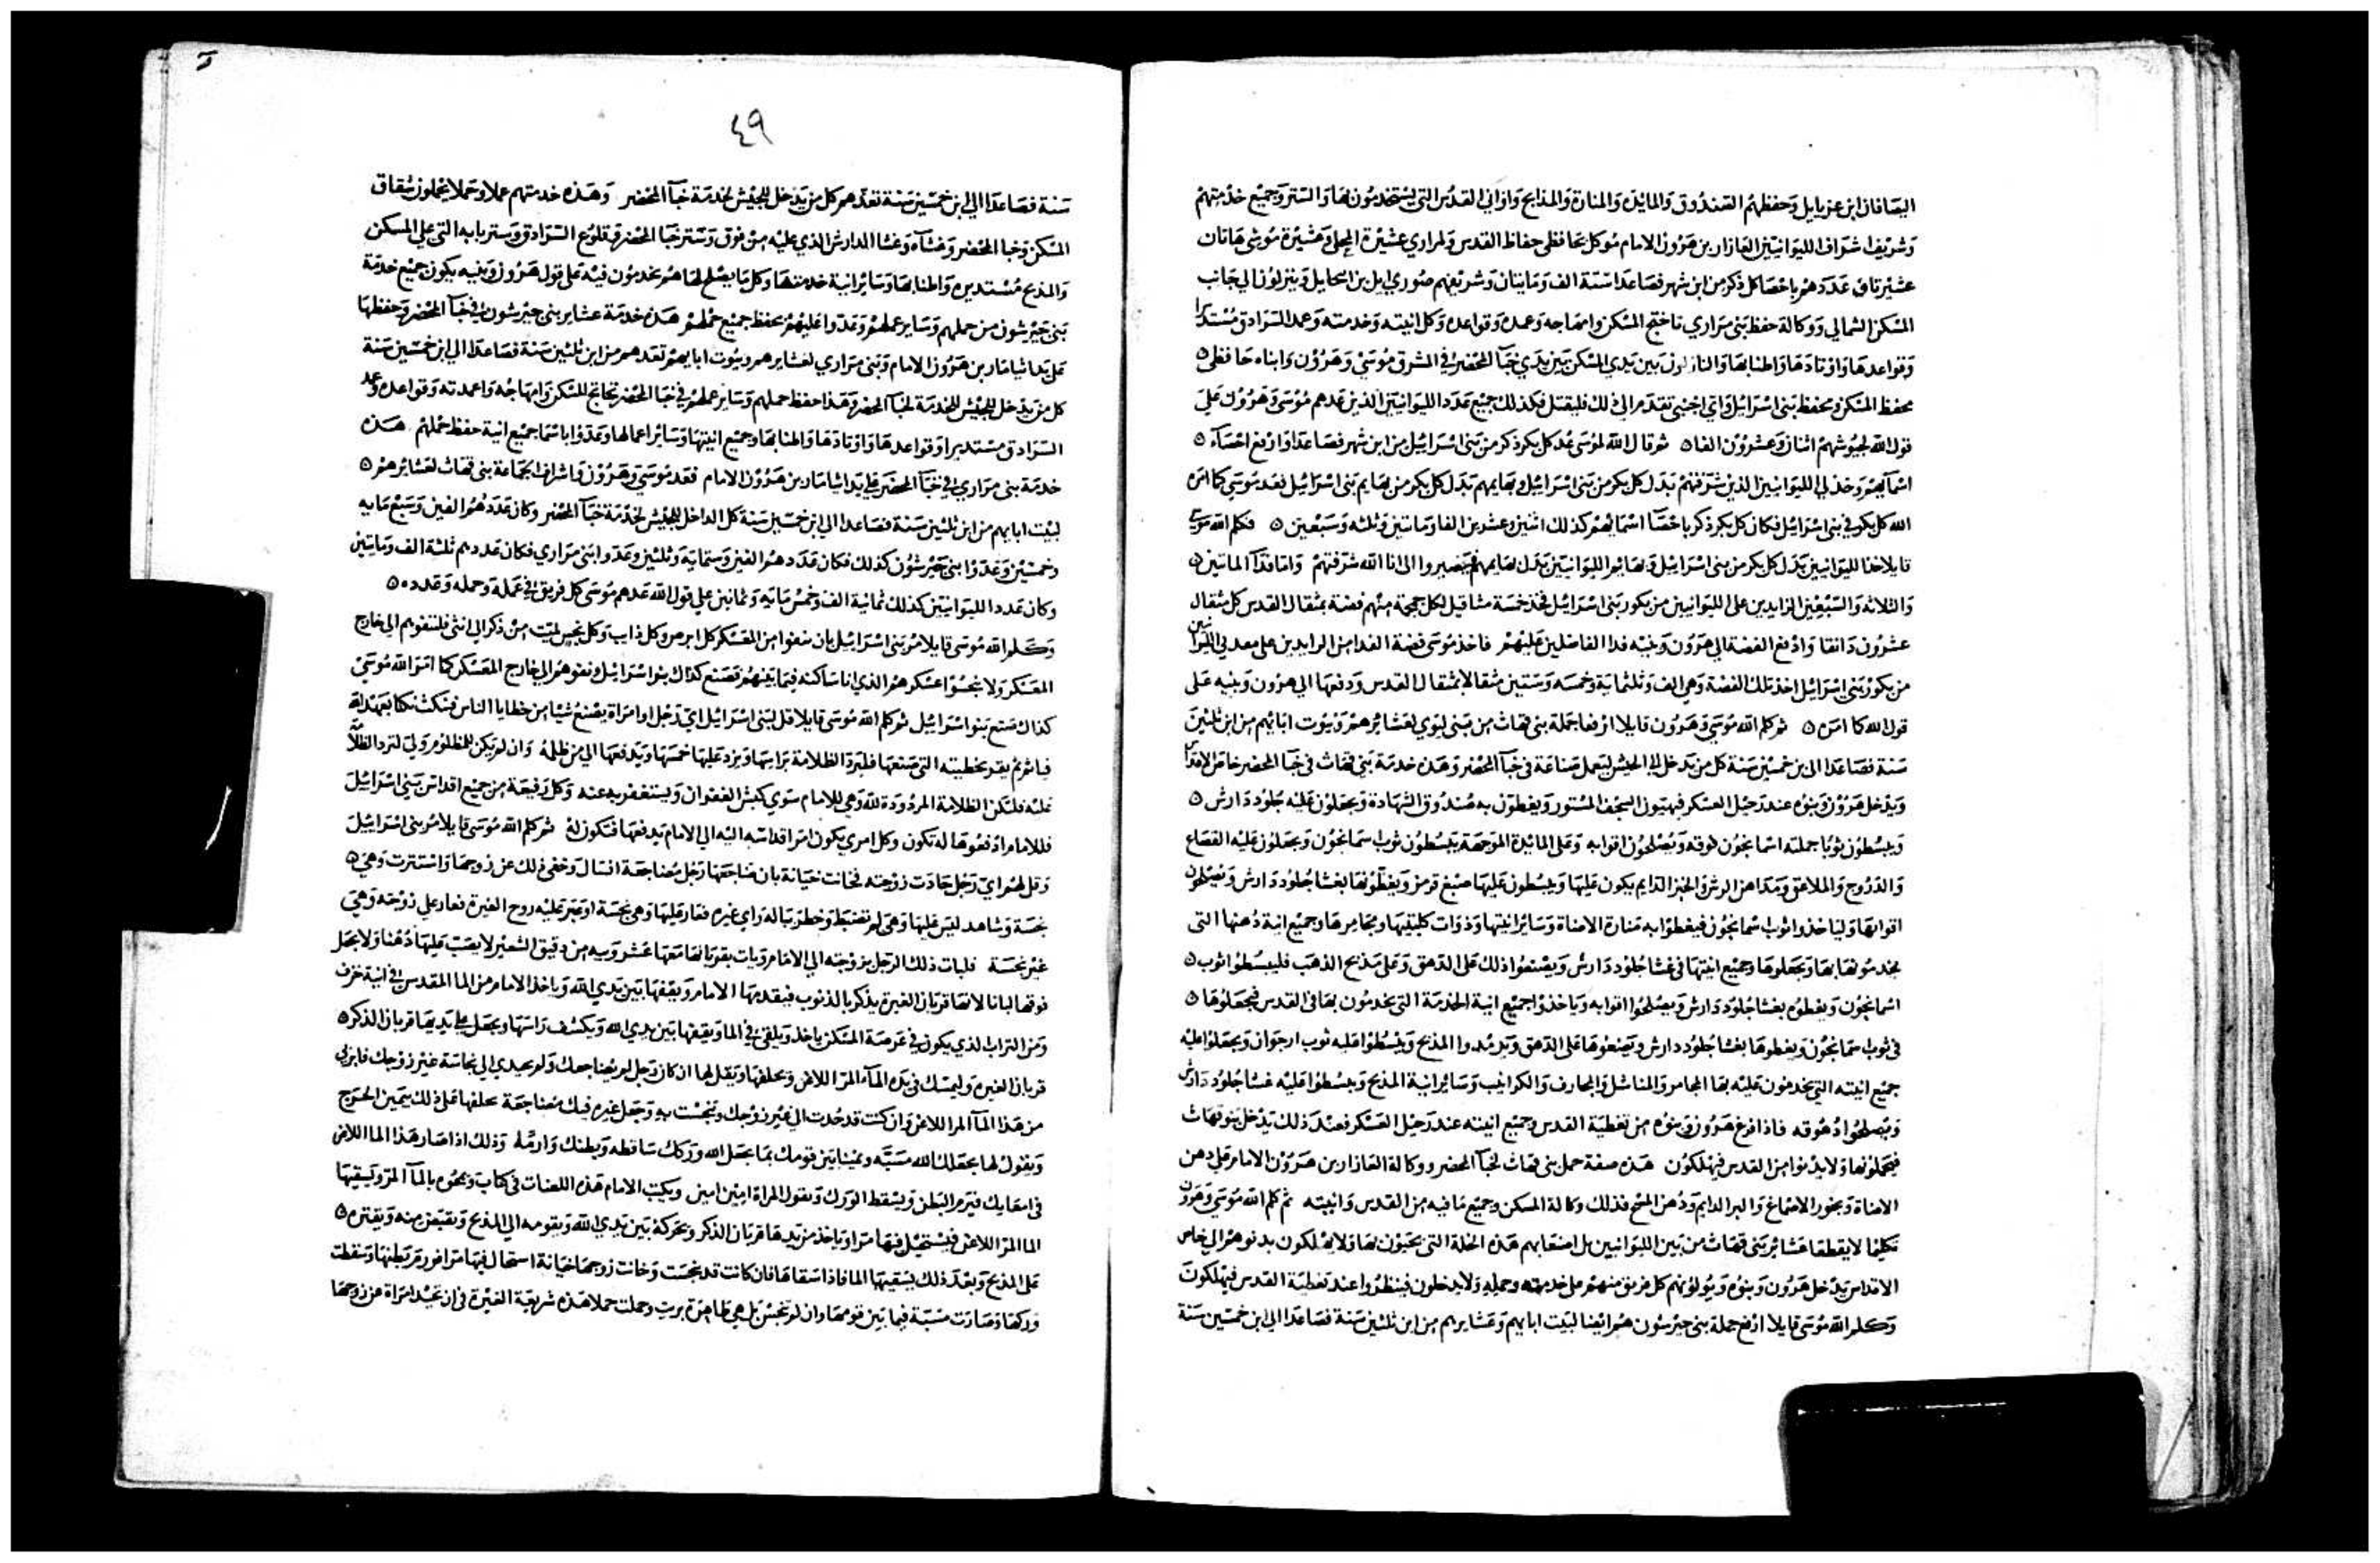 اليصافان ابن عزياييل وحفظهم الصندوق والمايدة والمنارة والمذابح واواني القدس التي يستخدمون بها والستر وجميع خدمتهم
وشريف اشراف الليوانيين العازار بن هرون الامام موكل بحافظي حفاظ القدس ولمراري عشيرة المحلي وعشيرة موشي هاتان
عشيرتاه عددهم باحصا كل ذكر من ابن شهر فصاعدا ستة الف ومايتان وشريفهم صوري ايل بن ابحايل وينزلون الي جانب
المسكن الشمالي ووكالة حفظ بني مراري تخاتج المسكن وامهاجه وعمده وقواعده وكل انيته وخدمته وعمد السرادق مستديرا
وقواعدها واوتادها واطنابها والنازلون بين يدي المسكن بين يدي خبآ المحضر في الشرق موسي وهرون وابناه حافظي ٥
محفظ المسكن ومحفظ بني اسراييل واي اجنبي تقدم الي ذلك فليقتل فكذلك جميع عدد الليوانيين الذين عدهم موسي وهرون علي
قول الله لجيوشهم اثنان وعشرون الفا ٥ ثم قال الله لموسي عد كل بكر ذكر من بني اسراييل من ابن شهر فصاعدا وارفع احصآء ٥
اسمآيهم وخذ لي الليوانيين الذين شرفتهم بدل كل بكر من بني اسراييل وبهايمهم بدل كل بكر من بهايم بني اسراييل فعد موسي كما امره
الله كل بكر في بني اسراييل فكان كل بكر ذكر باحصآ اسمايهم كذلك اثنين وعشرين الفا ومايتين وثلثه وسبعين ٥ فكلم الله موسي
قايلا خذ الليوانيين بدل كل بكر من بني اسراييل وبهايم الليوانيين بدل بهايمهم فيصيروا الي انا الله شرفتهم واما فدآ المايتين ٥
والثلاثه والسبعين الزايدين علي الليوانيين من بكور بني اسراييل فخذ خمسة مثاقيل لكل جمجمة منهم فضة بمثقال القدس كل مثقال
عشرون دانقا وادفع الفضة الي هرون وبنيه فدا الفاضلين عليهم فاخذ موسي فضة الفدا من الزايدين علي معدلي الليوانيين
من بكور بني اسراييل اخذ تلك الفضة وهي الف وثلثماية وخمسه وستين مثقالا بمثقال القدس ودفعها الي هرون وبنيه علي
قول الله كما امره ٥ ثم كلم الله موسي وهرون قايلا ارفعا جملة بني قهاث من بني ليوي لعشايرهم وبيوت ابايهم من ابن ثلثين
سنة فصاعدا الي ابن خمسين سنة كل من يدخل الي الجيش ليعمل صناعة في خبآ المحضر وهذه خدمة بني قهاث في خبآ المحضر خاص الاقداس
ويدخل هرون وبنوه عند رحيل العسكر فيهتون السجف المستور ويغطون به صندوق الشهادة ويجعلون عليه جلود دارش ٥
ويبسطون ثوبا جملته اسمانجون فوقه ويصلحون اقوابه وعلي المايدة الموجهة يبسطون ثوب اسمانجون ويجعلون عليه القصاع
والدروج والملاعق ومداهن الرش والخبز الدايم يكون عليها ويبسطون عليها صبغ قرمز ويغطونها بغشا جلود دارش ويصلحون
اقوابها ولياخذوا ثوب اسمانجون فيغطوا به منارة الاضاة وساير انيتها وذوات كلبتيها ومجامرها وجميع انية دهنها التي
يخدمونها بها ويجعلوها وجميع انيتها في غشا جلود دارش ويصنعوا ذلك علي الدهق وعلي مذبح الذهب فليبسطوا ثوب ٥
اسمانجون ويغطوه بغشا جلود دارش ويصلحوا اقوابه وياخذوا جميع انية الخدمة التي يخدمون بها في القدس فيجعلوها ٥
في ثوب اسمانجون ويغطوها بغشا جلود دارش ويصنعوها علي الدهق ويرمدوا المذبح ويبسطوا عليه ثوب ارجوان ويجعلوا عليه
جميع انيته التي يخدمون عليه بها المجامر والمناشل والمجارف والكرانيب وساير انية المذبح ويبسطوا عليه غشا جلود دارش
ويصلحوا دهوقه فاذا فرغ هرون وبنوه من تغطية القدس وجميع انيته عند رحيل العسكر فعند ذلك يدخل بنو قهاث
فيحملونها ولا يدنوا من القدس فيهلكون هذه صفة حمل بني قهاث لخبآ المحضر ووكالة العازار بن هرون الامام علي دهن
الاضاة وبخور الاصماغ والبر الدايم ودهن المسح فذلك وكالة المسكن وجميع ما فيه من القدس وانيته ثم كلم الله موسي وهرون
تكليما لا يقطعا عشاير بني قهاث من بين الليوانيين بل اصنعا بهم هذه الخلة التي يحيون بها ولا يهلكون بدنوهم الي خاص
الاقداس يدخل هرون وبنوه ويولونهم كل فريق منهم علي خدمته وحمله ولا يدخلون فينظروا عند تغطية القدس فيهلكون
وكلم الله موسي قايلا ارفع جملة بني جيرشون هم ايضا لبيت ابايهم وعشايرهم من ابن ثلثين سنة فصاعدا الي ابن خمسين سنة
٤٩
سنة فصاعدا الي ابن خمسين سنة تعدهم كل من يدخل للجيش لخدمة خبآ المحضر وهذه خدمتهم عملا وحملا يحملون شقاق
المسكن وخبا المحضر وغشآه وغشا الدارش الذي عليه من فوق وستر خبا المحضر وقلوع السرادق وستر بابه التي علي المسكن
والمذبح مستديره واطنابها وساير انية خدمتها وكل ما يصلح لها هم يخدمون فيه علي قول هرون وبنيه يكون جميع خدمة
بني جيرشون من حملهم وساير عملهم وعدوا عليهم بحفظ جميع حملهم هذه خدمة عشاير بني جيرشون في خبآ المحضر وحفظها
علي يد ايثامار بن هرون الامام وبني مراري لعشايرهم وبيوت ابايهم تعدهم من ابن ثلثين سنة فصاعدا الي ابن خمسين سنة
كل من يدخل للجيش للخدمة لخبآ المحضر وهذا حفظ حملهم وساير عملهم في خبا المحضر تخاتج المسكن وامهاجه واعمدته وقواعده وعمد
السرادق مستديرا وقواعدها واوتادها واطنابها وجميع انيتها وساير اعمالها وعدوا باسما جميع انية حفظ حملهم هذه
خدمة بني مراري في خبآ المحضر علي يد ايثامار بن هرون الامام فعد موسي وهرون واشراف الجماعة بني قهاث لعشايرهم ٥
لبيت ابايهم من ابن ثلثين سنة فصاعدا الي ابن خمسين سنة كل الداخل للجيش لخدمة خبآ المحضر وكان عددهم الفين وسبع مايه
وخمسين وعدوا بني جيرشون كذلك فكان عددهم الفين وستماية وثلثين وعدوا بني مراري فكان عددهم ثلثة الف ومايتين
وكان عدد الليوانيين كذلك ثمانية الف وخمس مايه وثمانين علي قول الله عدهم موسي كل فريق في عمله وحمله وعدده ٥
وكلم الله موسي قايلا مر بني اسراييل بان ينفوا من المعسكر كل ابرص وكل ذايب وكل نجس لميت من ذكر الي انثي فلتنفوهم الي خارج
المعسكر ولا ينجسوا عسكرهم الذي انا ساكنه فيما بينهم فصنع كذاك بنو اسراييل ونفوهم الي خارج المعسكر كما امر الله موسي
كذاك صنع بنو اسراييل ثم كلم الله موسي قايلا قل لبني اسراييل اي رجل او امراة يصنع شيا من خطايا الناس فنكث نكثا بعهد الله
فياثم ثم يقر بخطيته التي صنعها فليرد الظلامة براسها ويزد عليها خمسها ويدفعها الي من ظلمه وان لم يكن للمظلوم ولي لترد الظلامة
عليه فلتكن الظلامة المردودة لله وهي للامام سوي كبش الغفران ويستغفر به عنه وكل رفيعة من جميع اقداس بني اسراييل
فللامام ادفعوها له تكون وكل امري يكون امر اقداسه اليه الي الامام يدفعها فتكون له ثم كلم الله موسي قايلا مر بني اسراييل
وقل لهم اي رجل حادت زوجته فخانت خيانة بان ضاجعها رجل مضاجعة انسال وخفي ذلك عن زوجها واستترت وهي ٥
نجسة وشاهد ليس عليها وهي لم تضبط وخطر بباله راي غيره فغار عليها وهي نجسة او عبر عليه روح الغيرة فغار علي زوجته وهي
غير نجسة فليات ذلك الرجل بزوجته الي الامام ويات بقربانها معها عشر ويبه من دقيق الشعير لا يصب عليها دهنا ولا يجعل
فوقها لبانا لانها قربان الغيرة يذكر بالذنوب فيقدمها الامام ويقفها بين يدي الله وياخذ الامام من الما المقدس في انية خزف
ومن التراب الذي يكون في عرصة المسكن ياخذ ويلقي في الما ويقيمها بين يدي الله ويكشف راسها ويجعل علي يديها قربان الذكر ٥
قربان الغيره وليمسك في يده المآء المر اللاعن ويحلفها ويقل لها ان كان رجل لم يضاجعك ولم يحيدي الي نجاسة غير زوجك فابري
من هذا المآ المر اللاعن وان كنت قد حدت الي غير زوجك وتنجست به وجعل غيره فيك مضاجعة يحلفها علي ذلك بيمين الحرج
ويقول لها يجعلك الله مسبه ويمينا بين قومك بما يجعل الله وركك ساقطه وبطنك وارمه وذلك اذا صار هذا الما اللاعن
في امعايك فيرم البطن ويسقط الورك وتقول المراة امين امين ويكتب الامام هذه اللعنات في كتاب ويمحوه بالمآ المر ويسقيها
الما المر اللاعن فيستحيل فيها مرا وياخذ من يدها قربان الذكر ويحركه بين يدي الله ويقدمه الي المذبح ويقبض منه ويقتره ٥
علي المذبح وبعد ذلك يسقيها الما فاذا سقاها فان كانت قد نجست وخانت زوجها خيانة استحال فيها مرا فورم بطنها وسقطت
وركها وصارت مسبة فيما بين قومها وان لم تنجس بل هي طاهرة بريت وحملت حملا هذه شريعة الغيرة في ان تحيد امراة عن زوجها